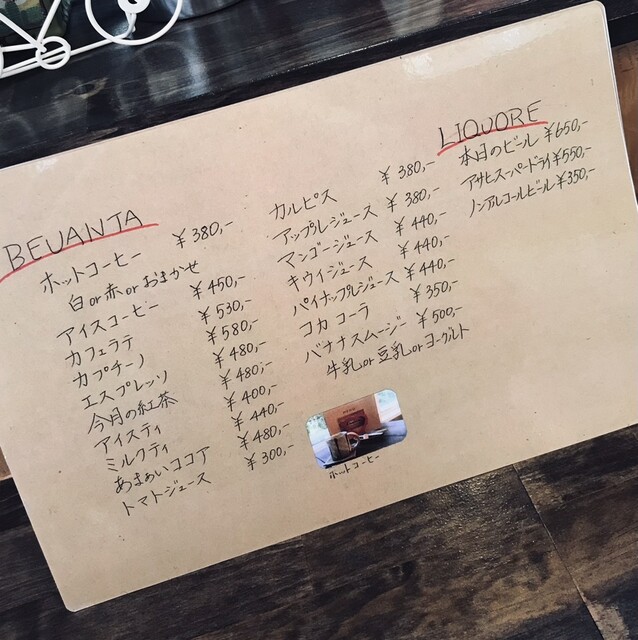 BEVANJA
ホットコーヒー ¥380,-
白or赤orおまかせ
アイスコーヒー ¥450,-
カフェラテ ¥530,-
カプチーノ ¥580,-
エスプレッソ ¥480,-
今月の紅茶 ¥480,-
アイスティ ¥400,-
ミルクティ ¥440,-
あまぁいココア ¥480,-
トマトジュース ¥300,-
カルピス ¥380,-
アップルジュース ¥380,-
マンゴージュース ¥440,-
キウイジュース ¥440,-
パイナップルジュース ¥440,-
コカコーラ ¥350,-
バナナスムージー ¥500,-
牛乳or豆乳orヨーグルト
ホットコーヒー
LIQUORE
本日のビール ¥650,-
アサヒスーパードライ ¥550,-
ノンアルコールビール ¥350,-